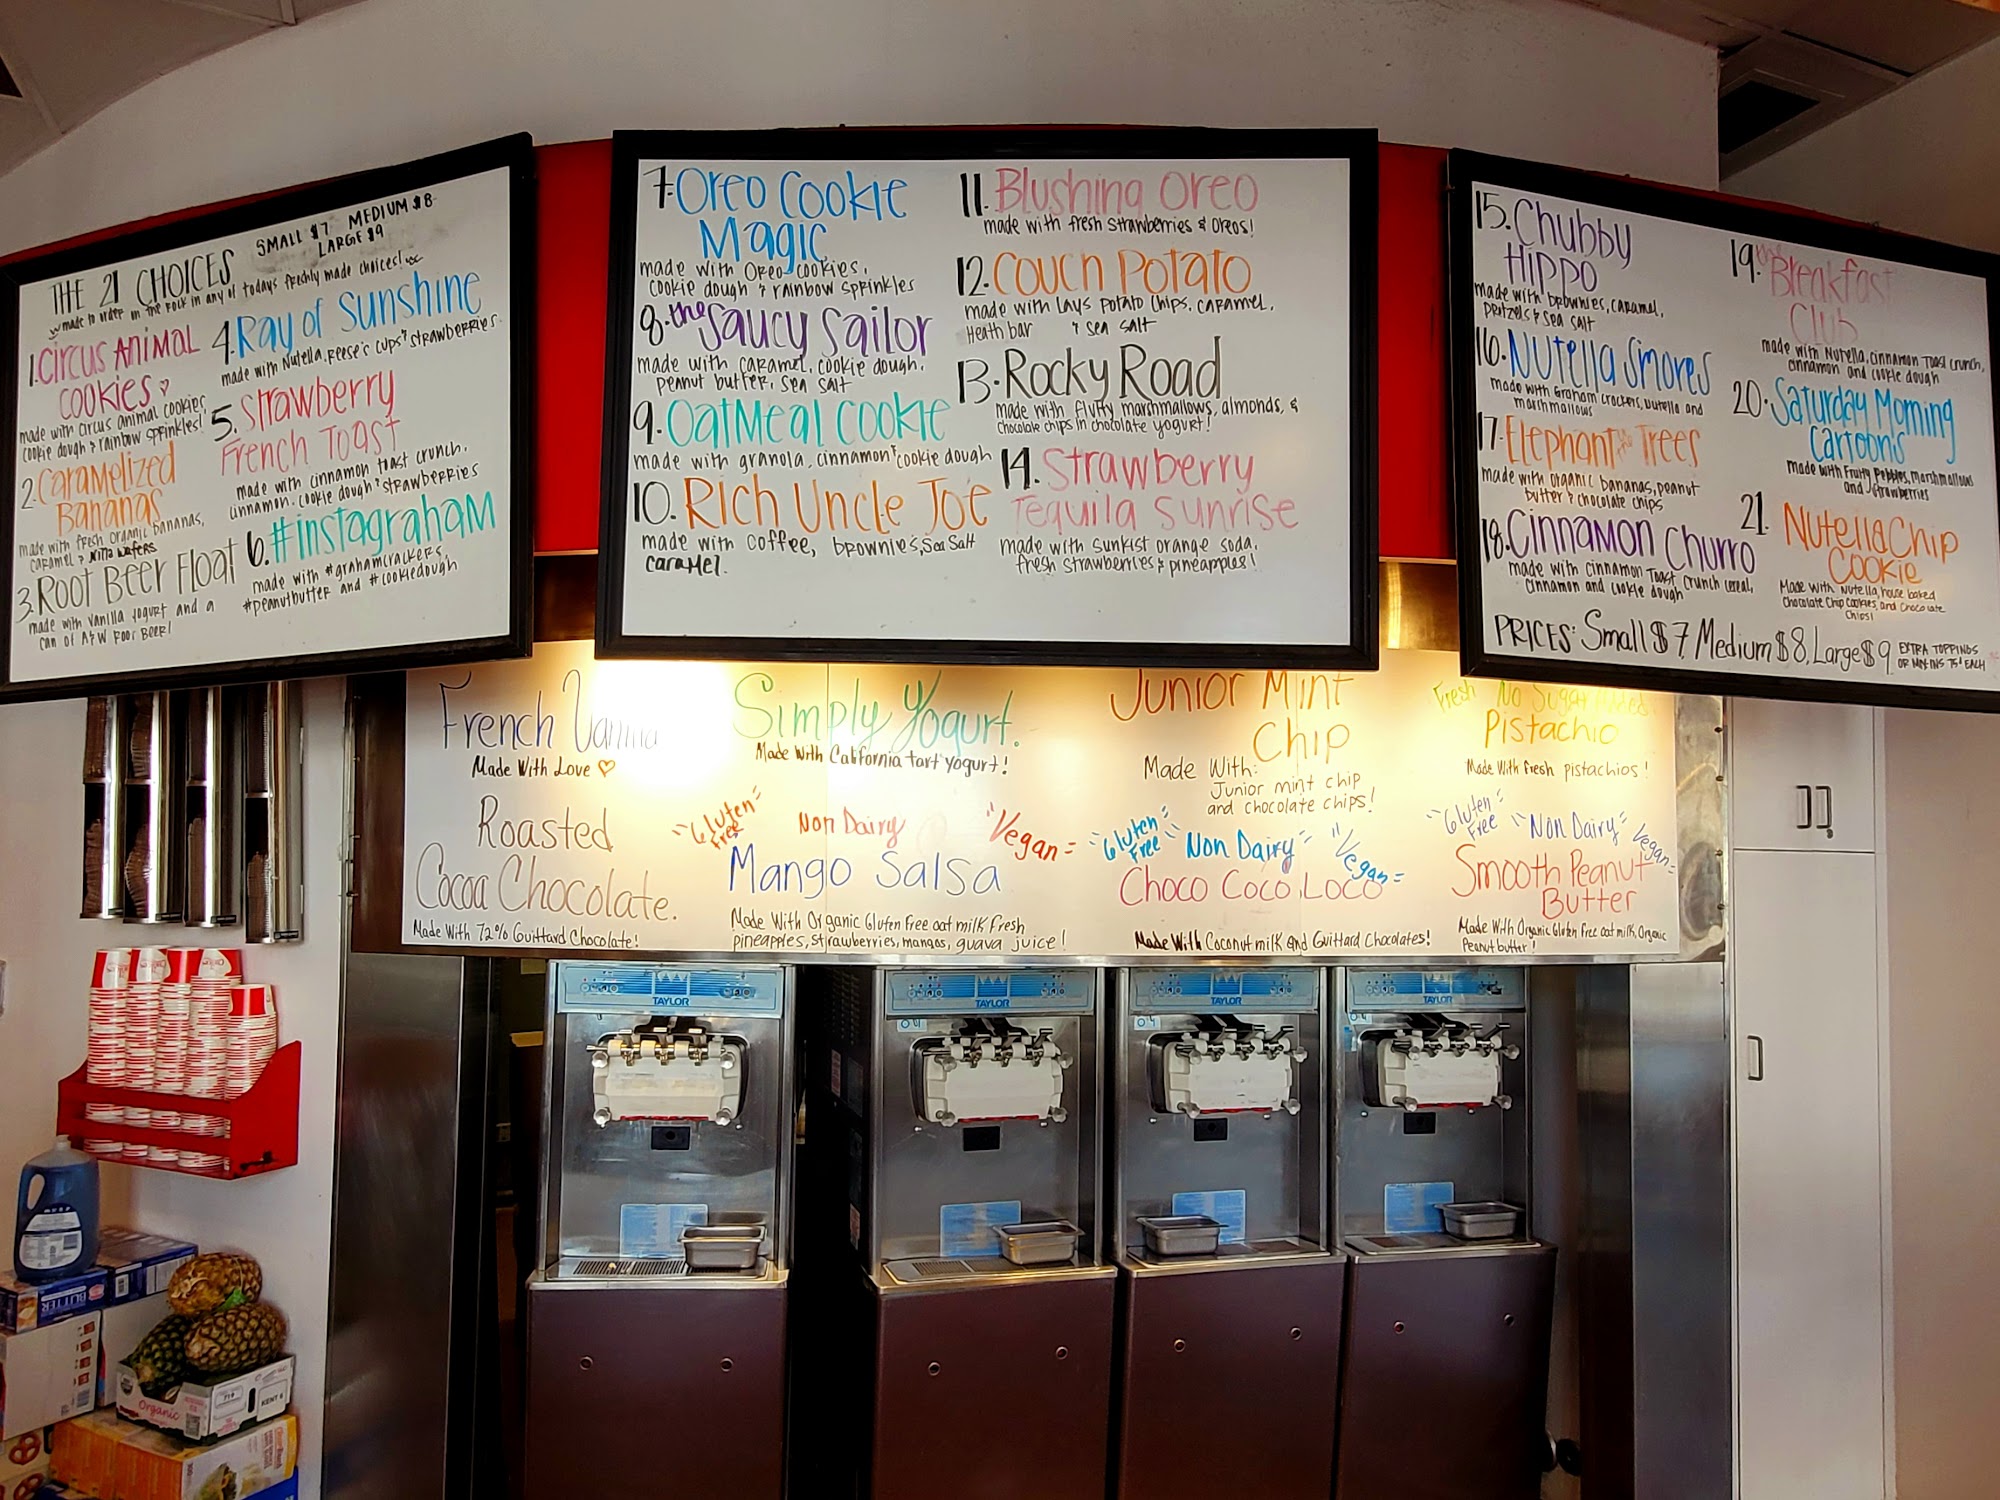 THE 21 CHOICES
SMALL $7 MEDIUM $8
LARGE $9
made to order on the rock in any of todays freshly made choices!
1. Circus Animal
Cookies
made with circus animal cookies,
cookie dough & rainbow sprinkles!
2. Caramelized
Bananas
made with fresh organic bananas,
caramel & Nilla Wafers
3. Root Beer Float
made with vanilla yogurt and a
can of A&W Root Beer!
4. Ray of Sunshine
made with Nutella, Reese's cups & strawberries
5. Strawberry
French Toast
made with cinnamon toast crunch,
cinnamon, cookie dough & strawberries
6. #instagraham
made with #grahamcrackers,
#peanutbutter and #cookiedough
7. Oreo Cookie
Magic
made with Oreo cookies,
cookie dough & rainbow sprinkles
8. the Saucy Sailor
made with caramel, cookie dough,
peanut butter, sea salt
9. Oatmeal Cookie
made with granola, cinnamon & cookie dough
10. Rich Uncle Joe
made with coffee, brownies, Sea Salt
caramel.
11. Blushing Oreo
made with fresh strawberries & Oreos!
12. Couch Potato
made with Lays potato chips, caramel,
Heath bar & sea salt
13. Rocky Road
made with fluffy marshmallows, almonds, &
chocolate chips in chocolate yogurt!
14. Strawberry
Tequila Sunrise
made with sunkist orange soda,
fresh strawberries & pineapples!
15. Chubby
Hippo
made with brownies, caramel,
pretzels & sea salt
16. Nutella S'mores
made with Graham crackers, nutella and
marshmallows
17. Elephant Trees
made with organic bananas, peanut
butter & chocolate chips
18. Cinnamon Churro
made with cinnamon Toast crunch cereal,
cinnamon and cookie dough
19. the Breakfast
Club
made with Nutella, cinnamon toast crunch,
cinnamon and cookie dough
20. Saturday Morning
Cartoons
made with Fruity Pebbles, marshmallows
and strawberries
21. Nutella Chip
Cookie
Made with Nutella, house baked
Chocolate Chip Cookies, and Chocolate
Chips!
PRICES: Small $7, Medium $8, Large $9 EXTRA TOPPINGS
OR MIX-INS 75¢ EACH
French Vanilla
Made With Love
Roasted
Cocoa Chocolate.
Made With 72% Guittard Chocolate!
Simply Yogurt.
Made With California tart yogurt!
Gluten
Free
Non Dairy
Vegan
Mango Salsa
Made With Organic Gluten Free oat milk Fresh
pineapples, strawberries, mangos, guava juice!
Junior Mint
Chip
Made With:
Junior mint chip
and chocolate chips!
Gluten
Free
Non Dairy
Vegan
Choco Coco Loco
Made With Coconut milk and Guittard Chocolates!
Fresh No Sugar Added
Pistachio
Made With fresh pistachios!
Gluten
Free
Non Dairy
Vegan
Smooth Peanut
Butter
Made With Organic Gluten Free oat milk, Organic
Peanut butter!
TAYLOR
TAYLOR
TAYLOR
TAYLOR
BUTTER
Organic